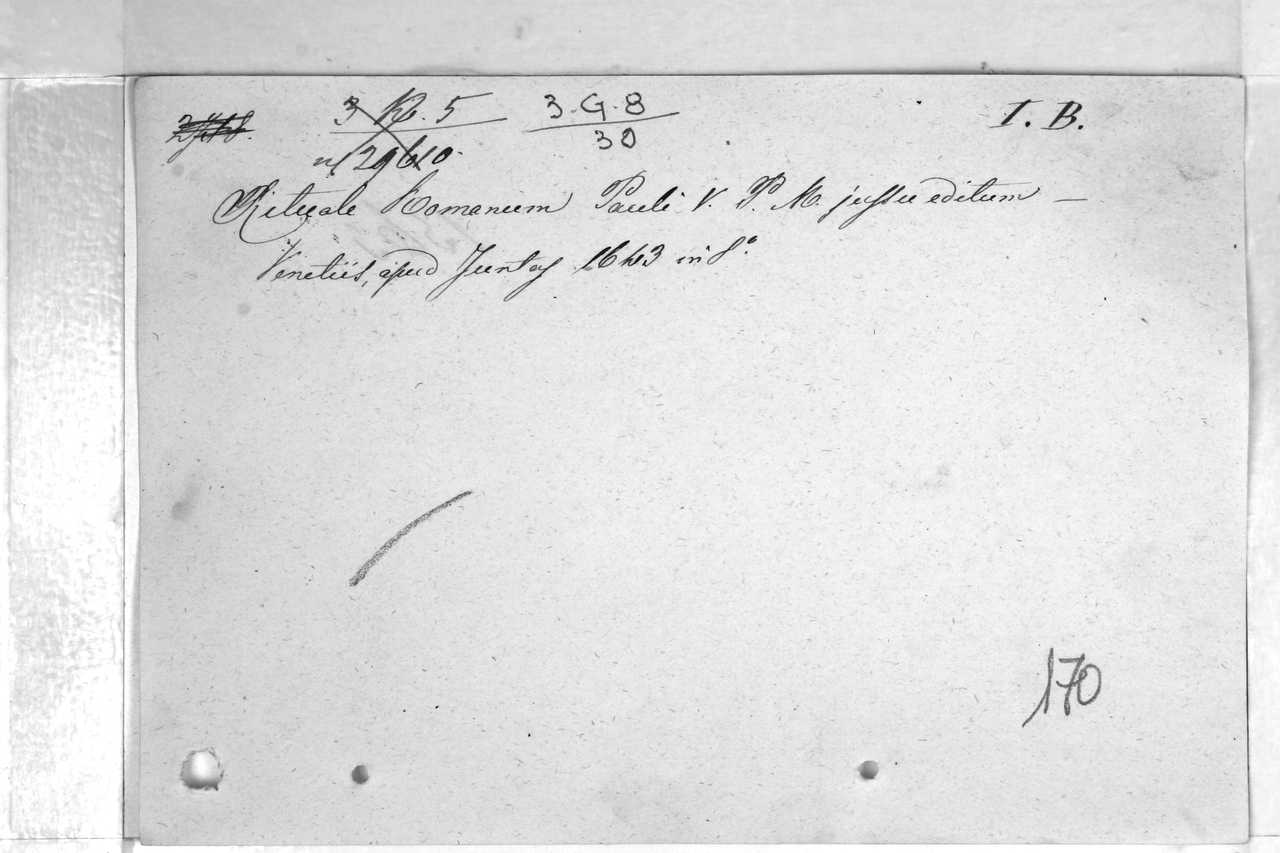 3 R. 5 3·G·8 I. B.
n. 29610 30
Rituale Romanum Pauli V. P. M. jussu editum —
Venetiis, apud Juntas 1643 in 8°
170